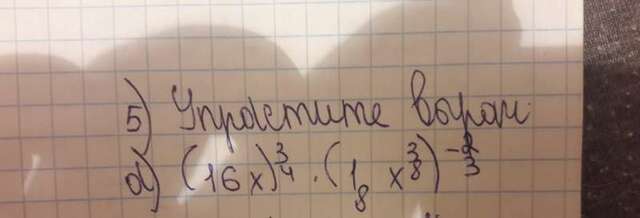 5) Упростите выраж
a) (16x)^3/4 · (1/8 x^3/8)^-2/3